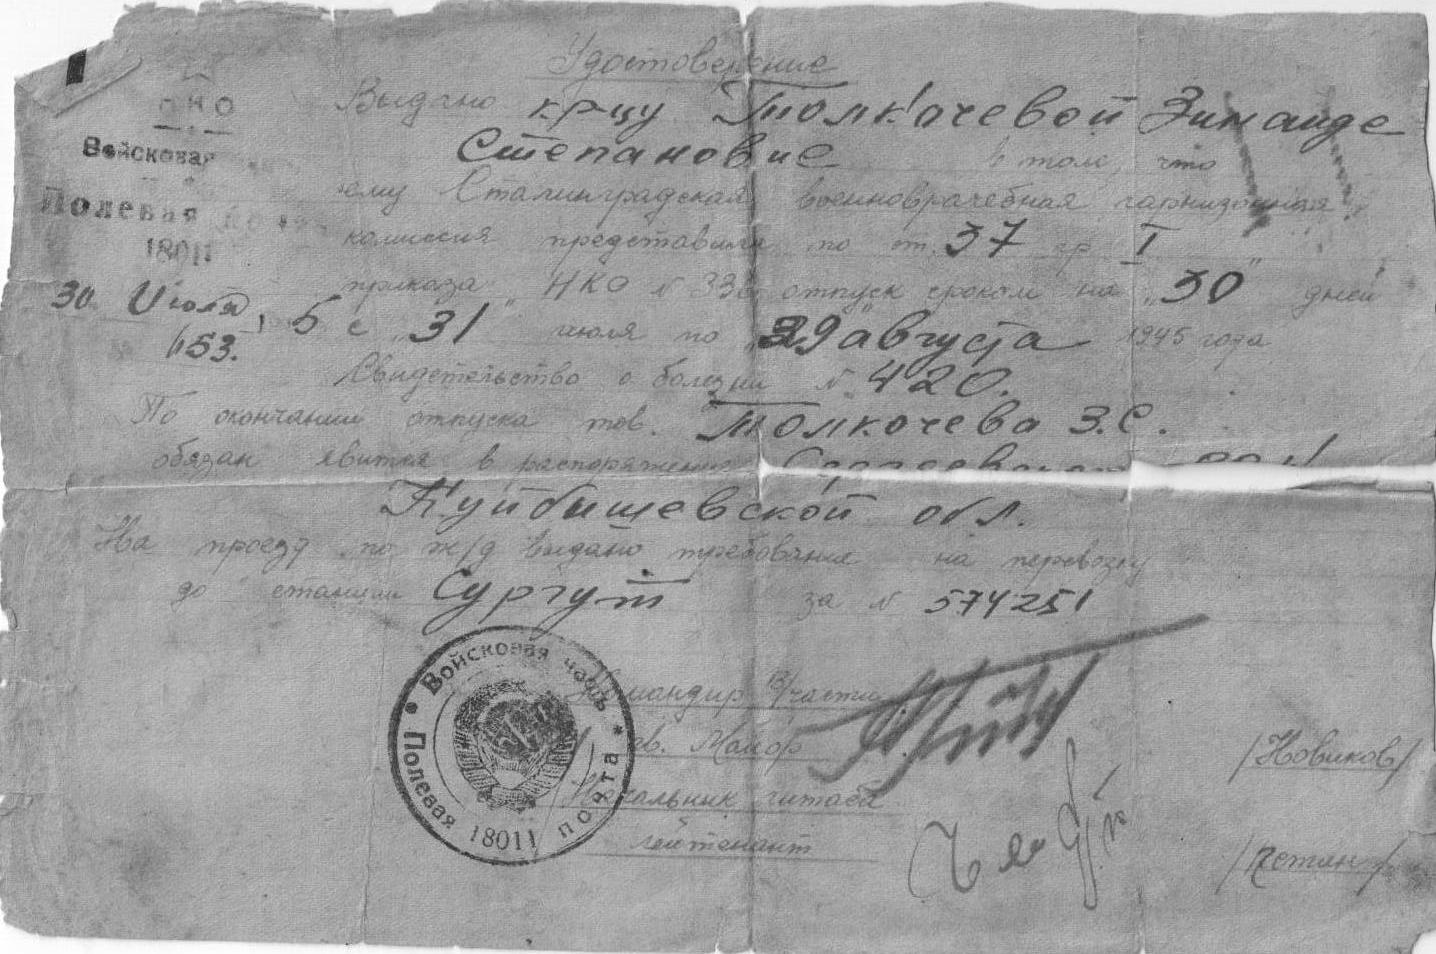 Удостоверение
Выдано кр-цу Толкочевой Зинаиде
Степановне в том, что
НКО
Войсковая
ему Сталинградская военноврачебная гарнизонная
Полевая
комиссия представила по ст. 37 гр I
18011
приказа НКО № 336 отпуск сроком на "30" дней
30 Июля 5 с "31" июля по "29" августа 1945 года
1153.
Свидетельство о болезни № 420.
По окончании отпуска тов. Толкочева З.С.
обязан явится в распоряжение
Куйбышевской обл.
На проезд по ж/д выдано требование на перевозку
до станции Сургут за № 574251
Войсковая часть
Полевая почта
18011
Командир В/части
Майор /Новиков/
Начальник штаба
лейтенант